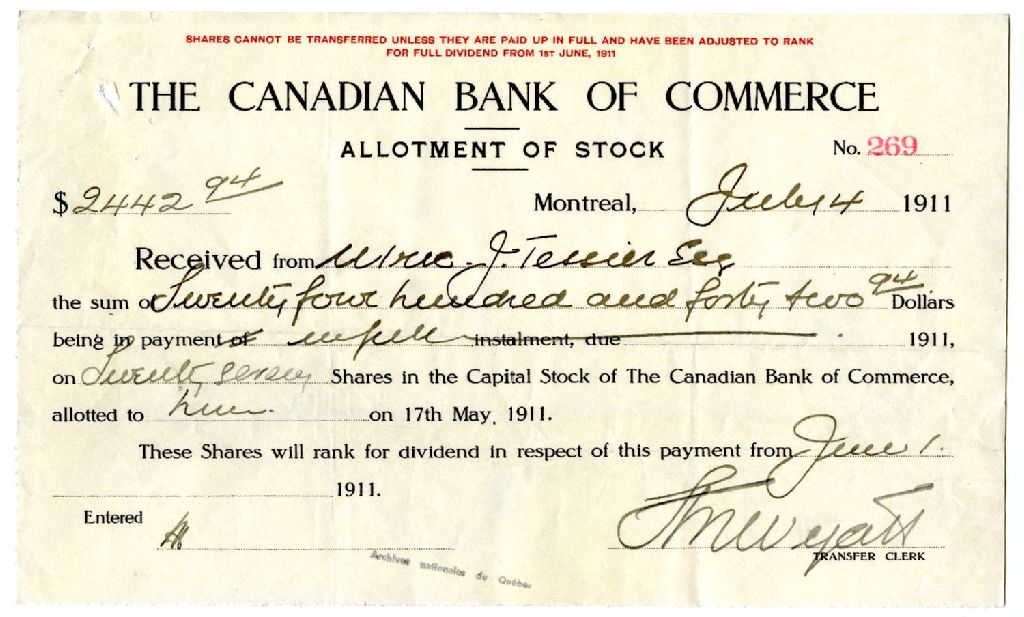 SHARES CANNOT BE TRANSFERRED UNLESS THEY ARE PAID UP IN FULL AND HAVE BEEN ADJUSTED TO RANK
FOR FULL DIVIDEND FROM 1ST JUNE, 1911
THE CANADIAN BANK OF COMMERCE
ALLOTMENT OF STOCK
No. 269
$ 2442 94
Montreal, July 4 1911
Received from Ulric J. Tessier Esq
the sum of Twenty four hundred and forty two 94 Dollars
being in payment of in full instalment, due 1911,
on Twenty seven Shares in the Capital Stock of The Canadian Bank of Commerce,
allotted to him on 17th May, 1911.
These Shares will rank for dividend in respect of this payment from June 1.
1911.
Entered
Wyatt
TRANSFER CLERK
Archives nationales du Québec